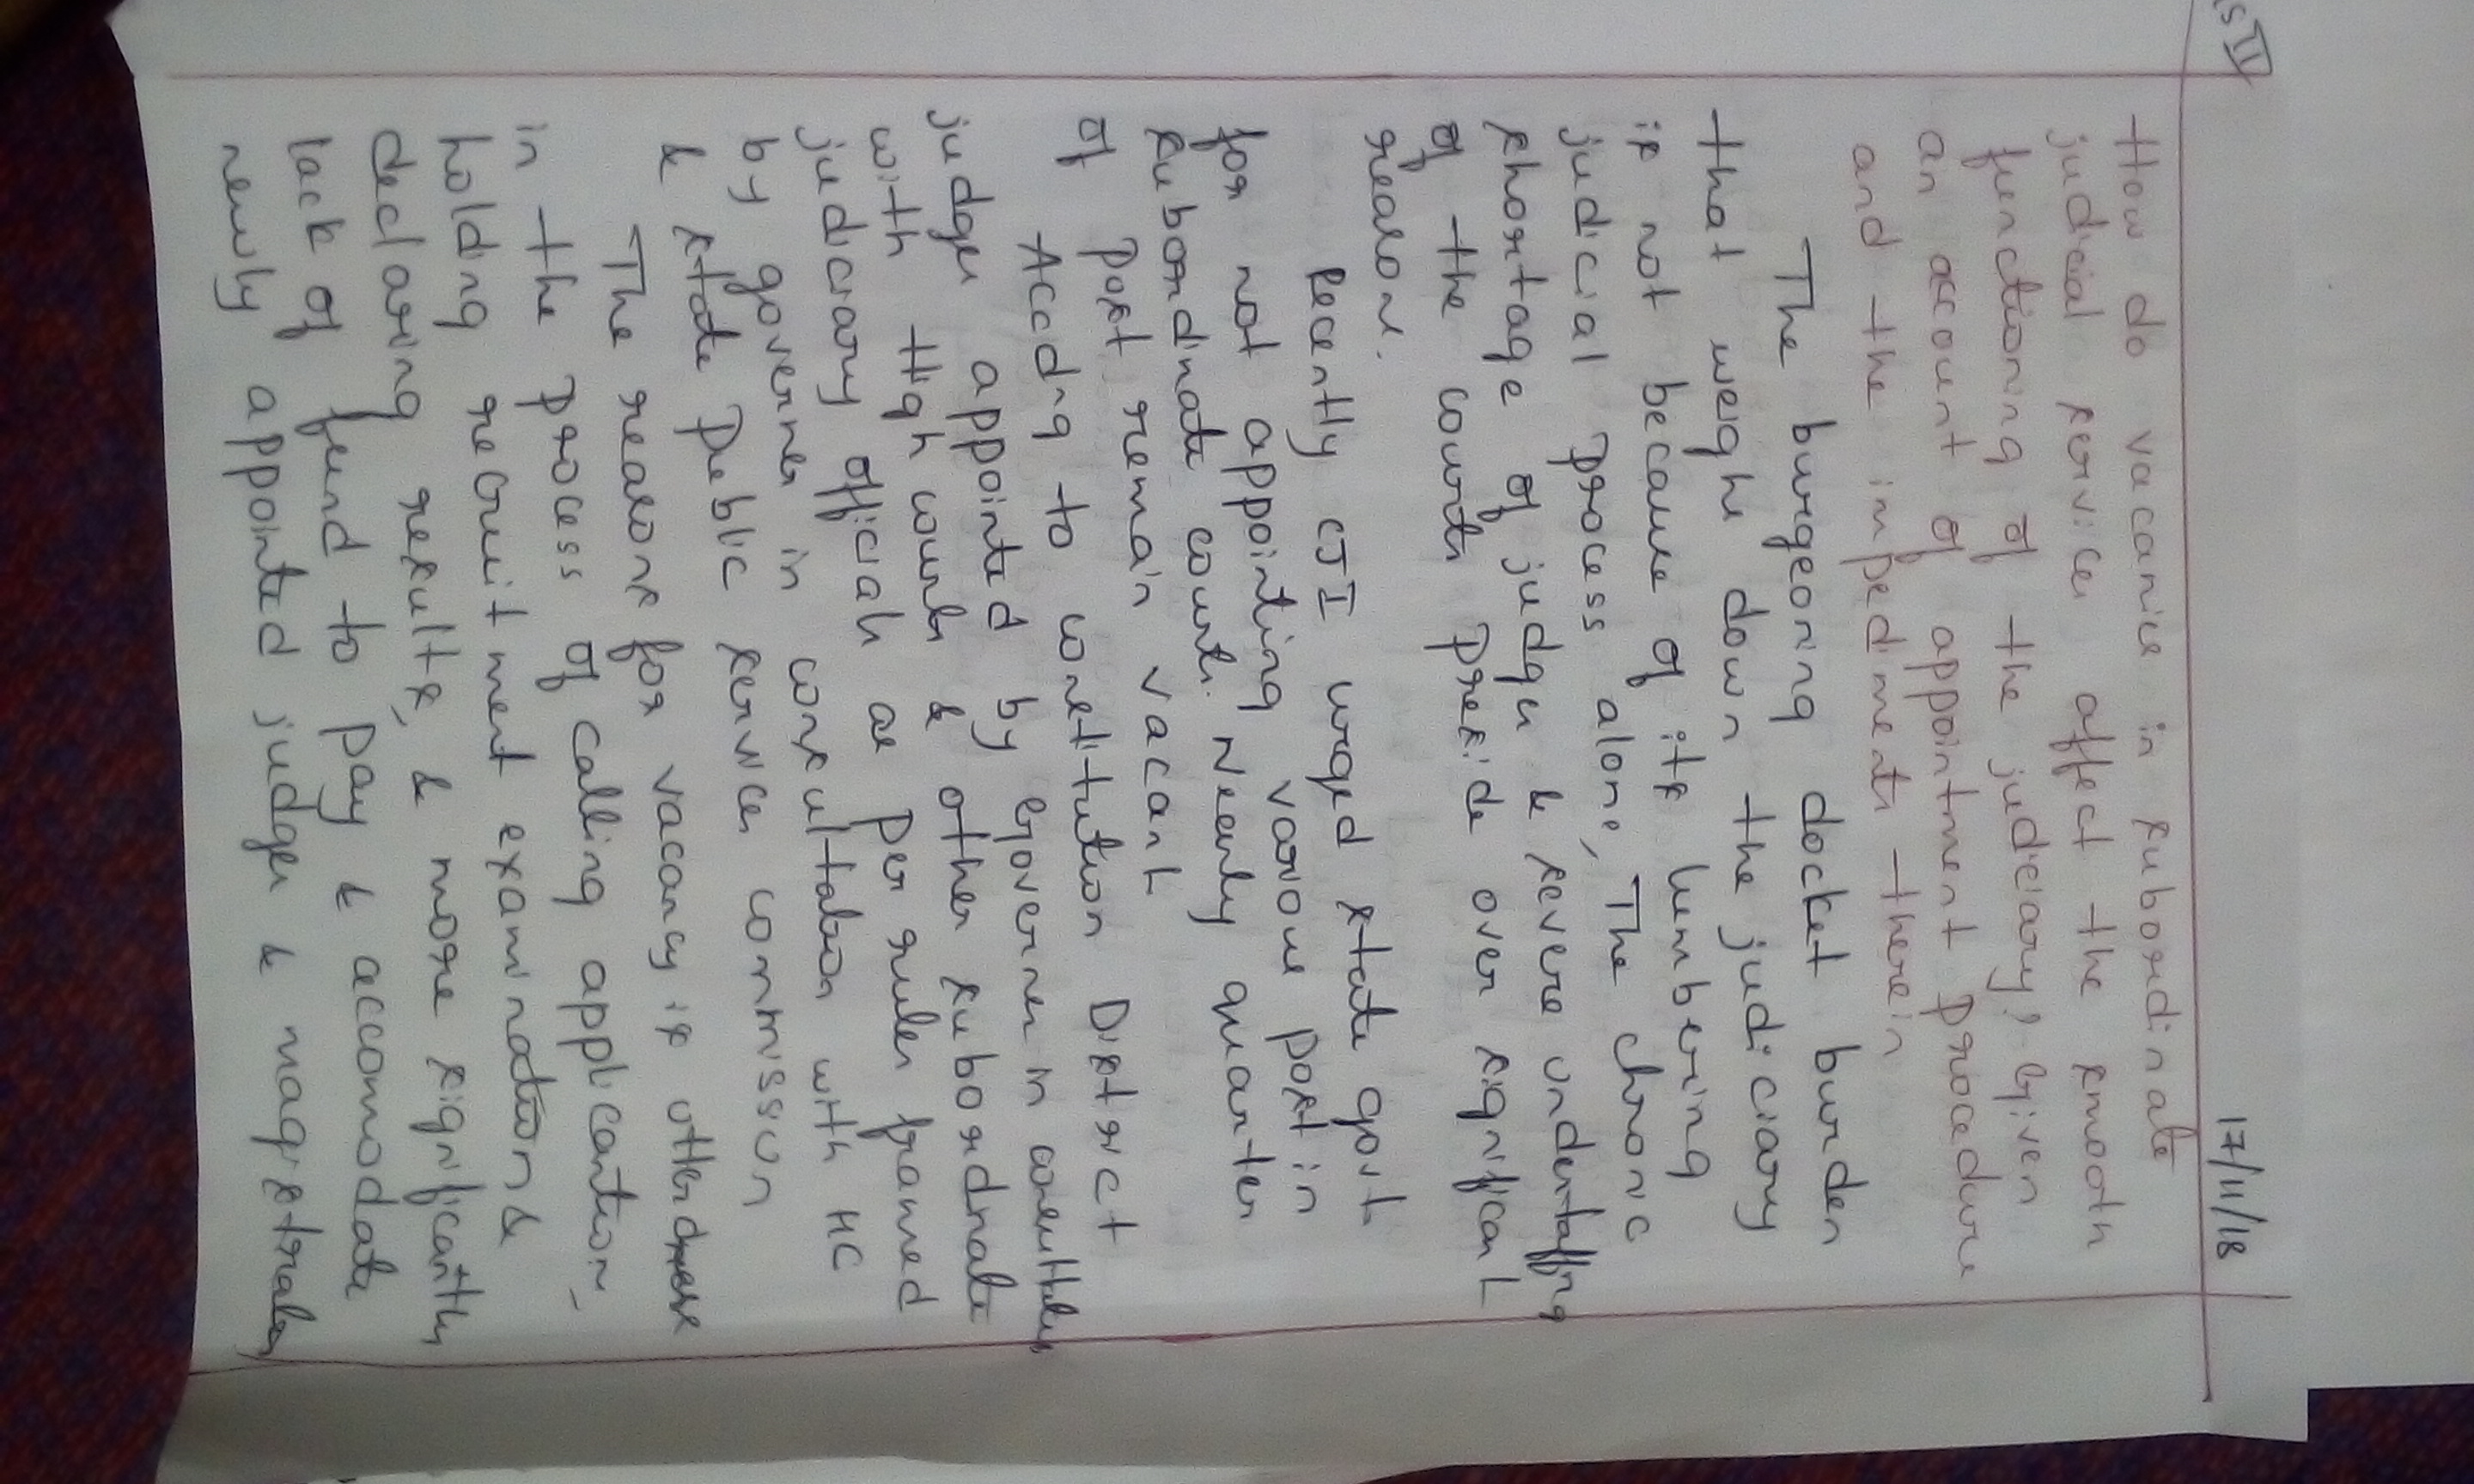 17/11/18
How do vacancies in subordinate
judicial services affect the smooth
functioning of the judiciary? Given
an account of appointment procedure
and the impediments therein
The burgeoning docket burden
that weighs down the judiciary
is not because of its lumbering
judicial process alone, The chronic
shortage of judges & severe understaffing
of the courts preside over significant
reasons.
Recently CJI urged state govt
for not appointing various post in
subordinate courts. Nearly quarter
of post remain vacant
Accdng to constitution District
judges appointed by Governer in
with High courts & other subordinate
judiciary officials as per rules framed
by governer in consultation with HC
& state Public services commission
The reasons for vacancy is
in the process of calling application,
holding recruitment examinations &
declaring results, & more significantly
lack of fund to pay & accomodate
newly appointed judges & magistrates